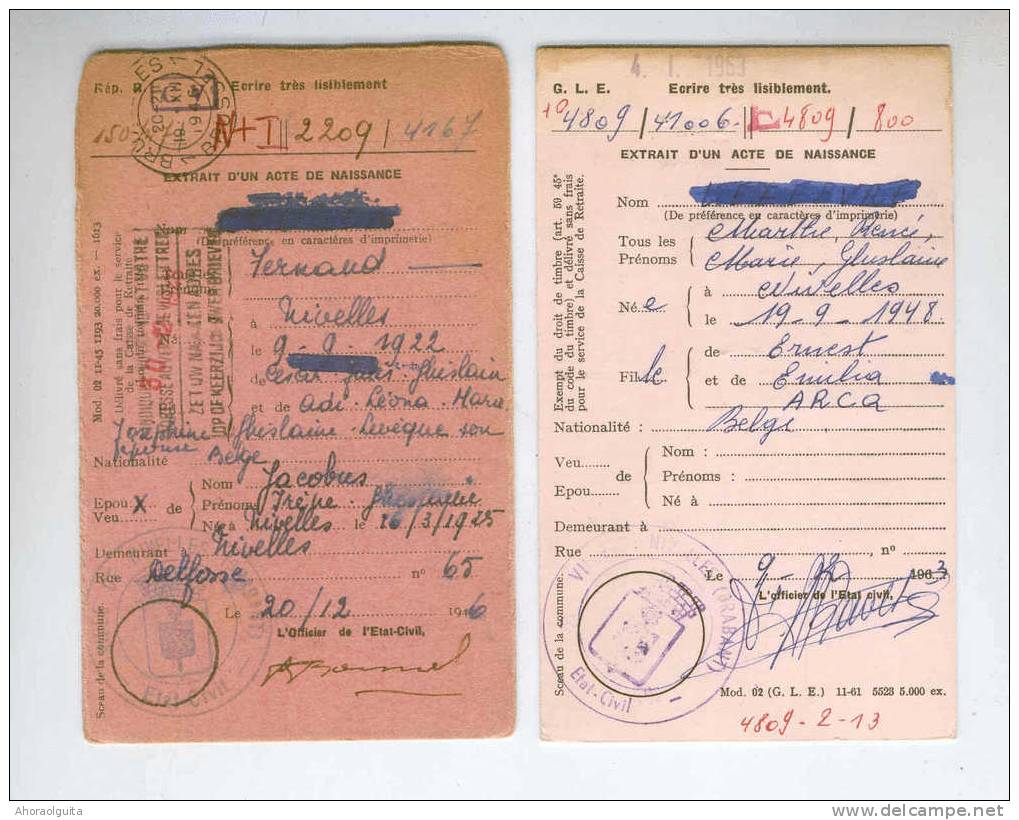 Rép. R.
Ecrire très lisiblement
150
N+I 2209 / 4167
EXTRAIT D'UN ACTE DE NAISSANCE
Nom
(De préférence en caractères d'imprimerie)
Fernand
Prénoms
à Nivelles
Né
le 9-9-1922
de Ghislain
et de Léona - Marie
Joséphine Ghislaine Levêque son
épouse
Nationalité Belge
Nom Jacobus
Epou X de Prénoms Irène
Veu
Né à Nivelles le /3/1925
Demeurant à Nivelles
Rue Delfosse n° 65
Le 20/12 1946
L'Officier de l'Etat-Civil,
Sceau de la commune.
Etat-Civil
Mod. 02 11-45 1193 20.000 ex. — 1613
Délivré sans frais pour le service
de la Caisse de Retraite
ZET UW NAAM EN ADRES
OP DE KEERZIJDE UWER BRIEVEN
4. 1. 1963
G. L. E. Ecrire très lisiblement.
4809 / 41006 - E 4809 / 800
EXTRAIT D'UN ACTE DE NAISSANCE
Nom
(De préférence en caractères d'imprimerie)
Tous les Marthe, Renée,
Prénoms Marie, Ghislaine
à Nivelles
Née
le 19-9-1948.
de Ernest
Fille
et de Emilia
ARCQ
Nationalité : Belge
Nom :
Veu
de Prénoms :
Epou
Né à
Demeurant à
Rue , n°
Le 9- 1963
L'Officier de l'Etat civil,
Sceau de la commune.
Etat-Civil
Exempt du droit de timbre (art. 59 45°
du code du timbre) et délivré sans frais
pour le service de la Caisse de Retraite.
Mod. 02 (G. L. E.) 11-61 5523 5.000 ex.
4809-2-13
Ahoraolguita
DELCAMPE.NET